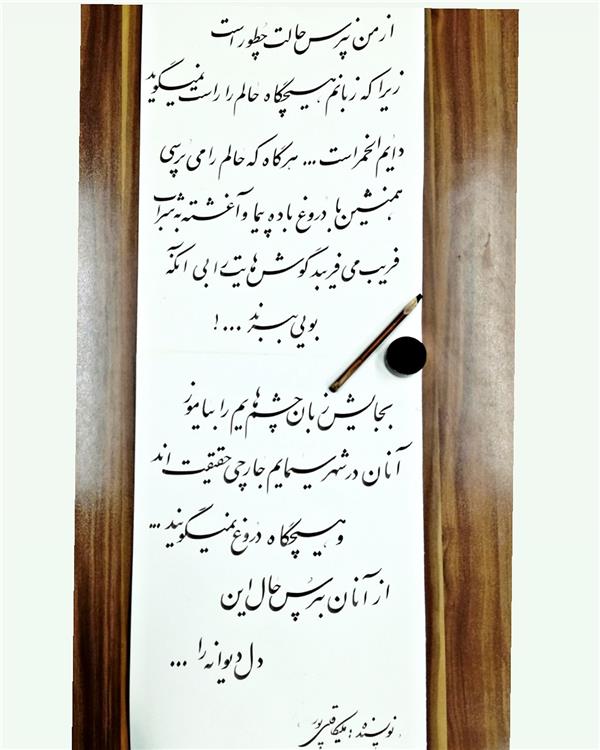 از من نپرس حالت چطور است
زیرا که زبانم هیچگاه حالم را راست نمیگوید
دایم الخمر است ... هرگاه که حالم را می پرسی
همنشین با دروغ باده پیما و آغشته به شراب
فریب می فریبد گوش هایت را بی آنکه
بویی ببرند ... !
بجایش زبان چشم هایم را بیاموز
آنان در شهر سیمایم جارچی حقیقت اند
و هیچگاه دروغ نمیگویند ...
از آنان بپرس حال این
دل دیوانه را ...
نویسنده : ملیکا قلی پور